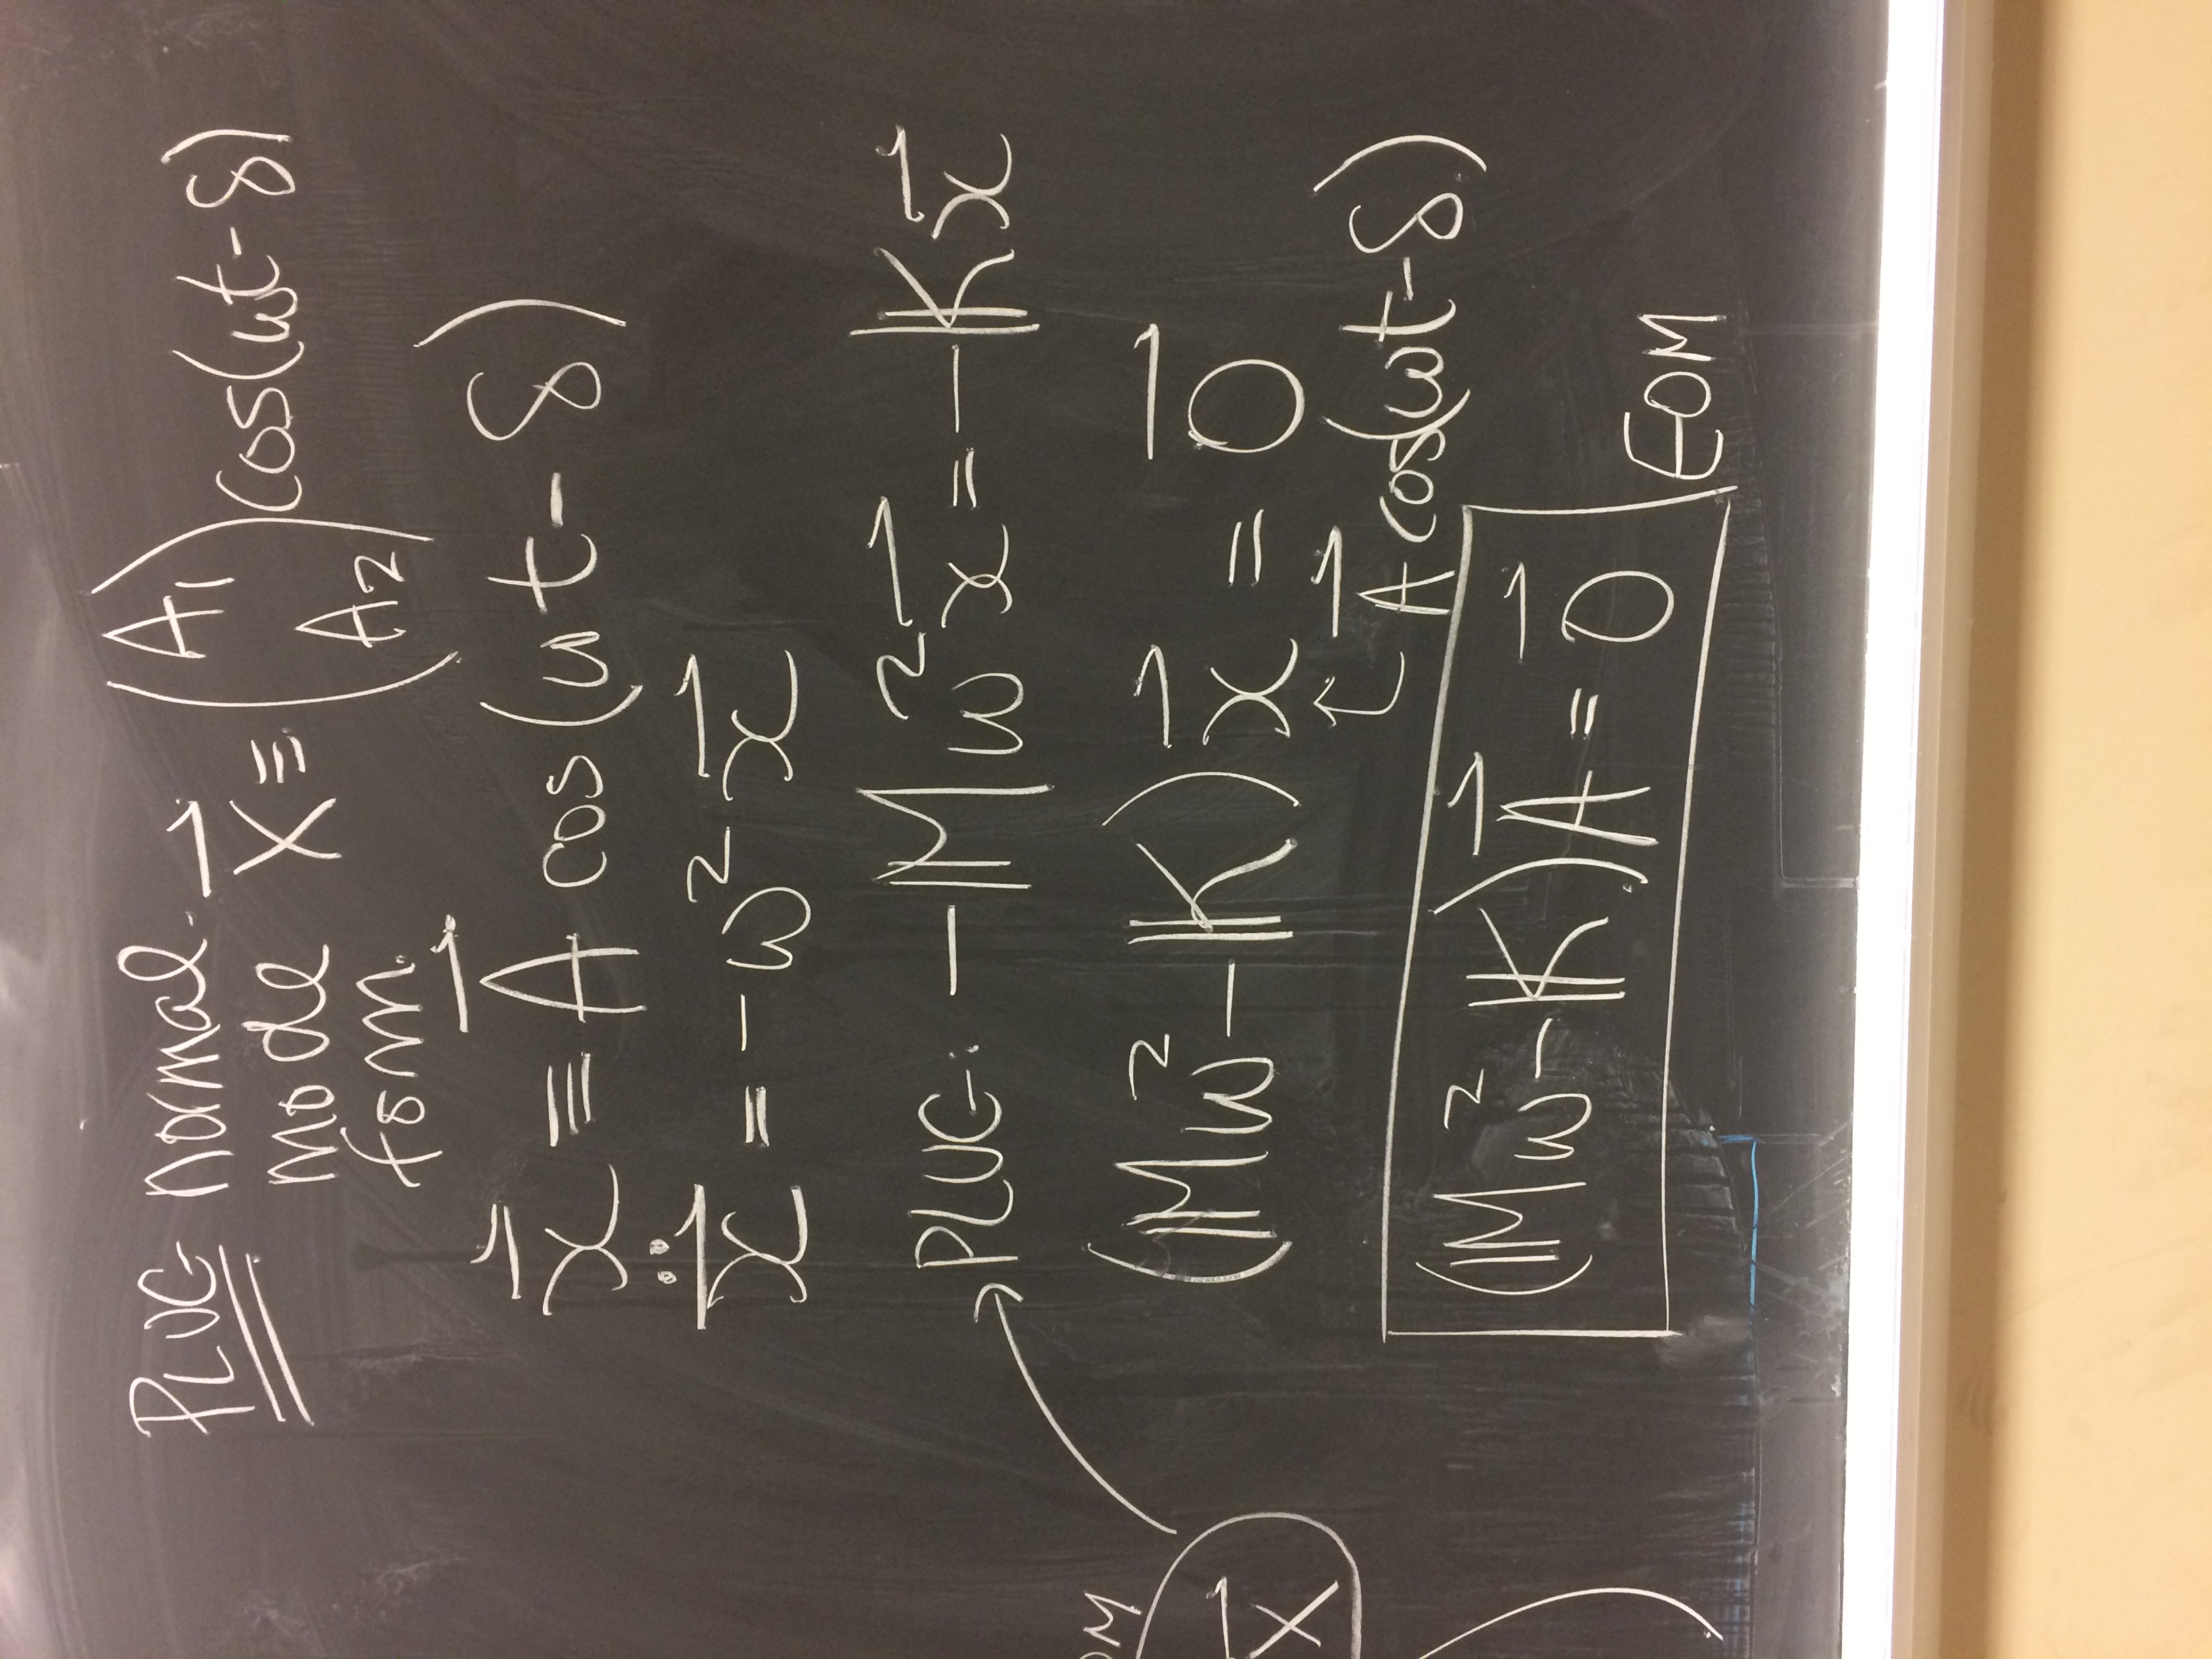 PLUG normal mode form. x⃗ ≡ (A₁ A₂) cos(ωt-δ)
x⃗ ≡ A⃗ cos(ωt-δ)
ẍ⃗ = -ω² x⃗
PLUG: -𝕄ω² x⃗ = -𝕂x⃗
(𝕄ω² - 𝕂) x⃗ = 0⃗
A⃗ cos(ωt-δ)
(𝕄ω² - 𝕂)A⃗ = 0⃗ EOM
x⃗